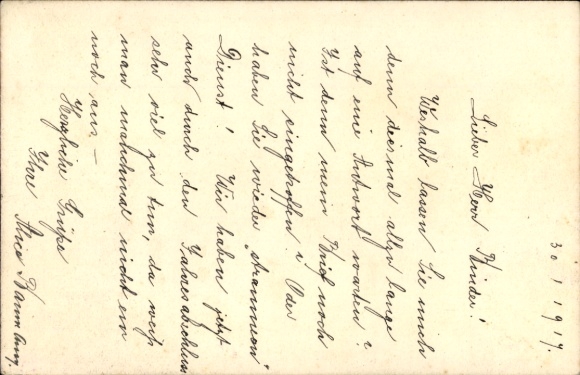 30 1 1917.
Lieber Herr Kinder!
Weshalb lassen Sie mich
denn diesmal allzu lange
auf eine Antwort warten?
Ist denn mein Brief noch
nicht eingetroffen? Oder
haben Sie wieder "strammen"
Dienst! Wir haben jetzt
auch durch den Jahresabschluss
sehr viel zu tun, da weiß
man manchmal nicht ein
noch aus. —
Herzliche Grüße
Ihre Alice